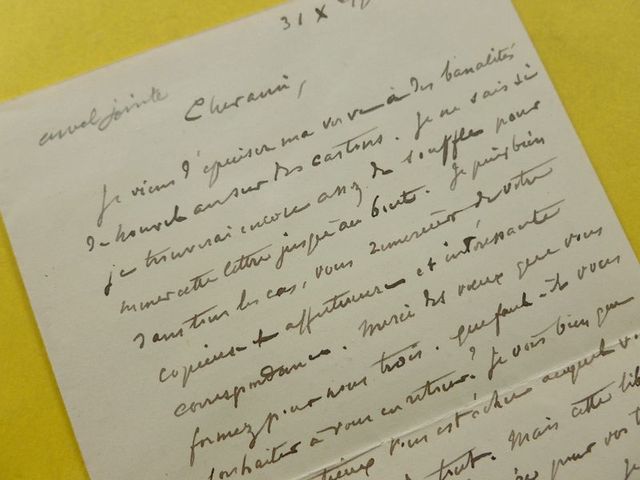 31 X
jointe
Cher ami,
Je viens d'épuiser ma verve à des banalités
de nouvel an sur des cartons. Je ne sais si
je trouverai encore assez de souffle pour
mener cette lettre jusqu'au bout. Je puis bien
dans tous les cas, vous remercier de votre
copieuse & affectueuse et intéressante
correspondance. Merci des vœux que vous
formez pour nous trois. Que faut-il vous
souhaiter à vous en retour? Je vois bien que
vous est échue auquel v.
Mais cette lib
pour vos t
Je